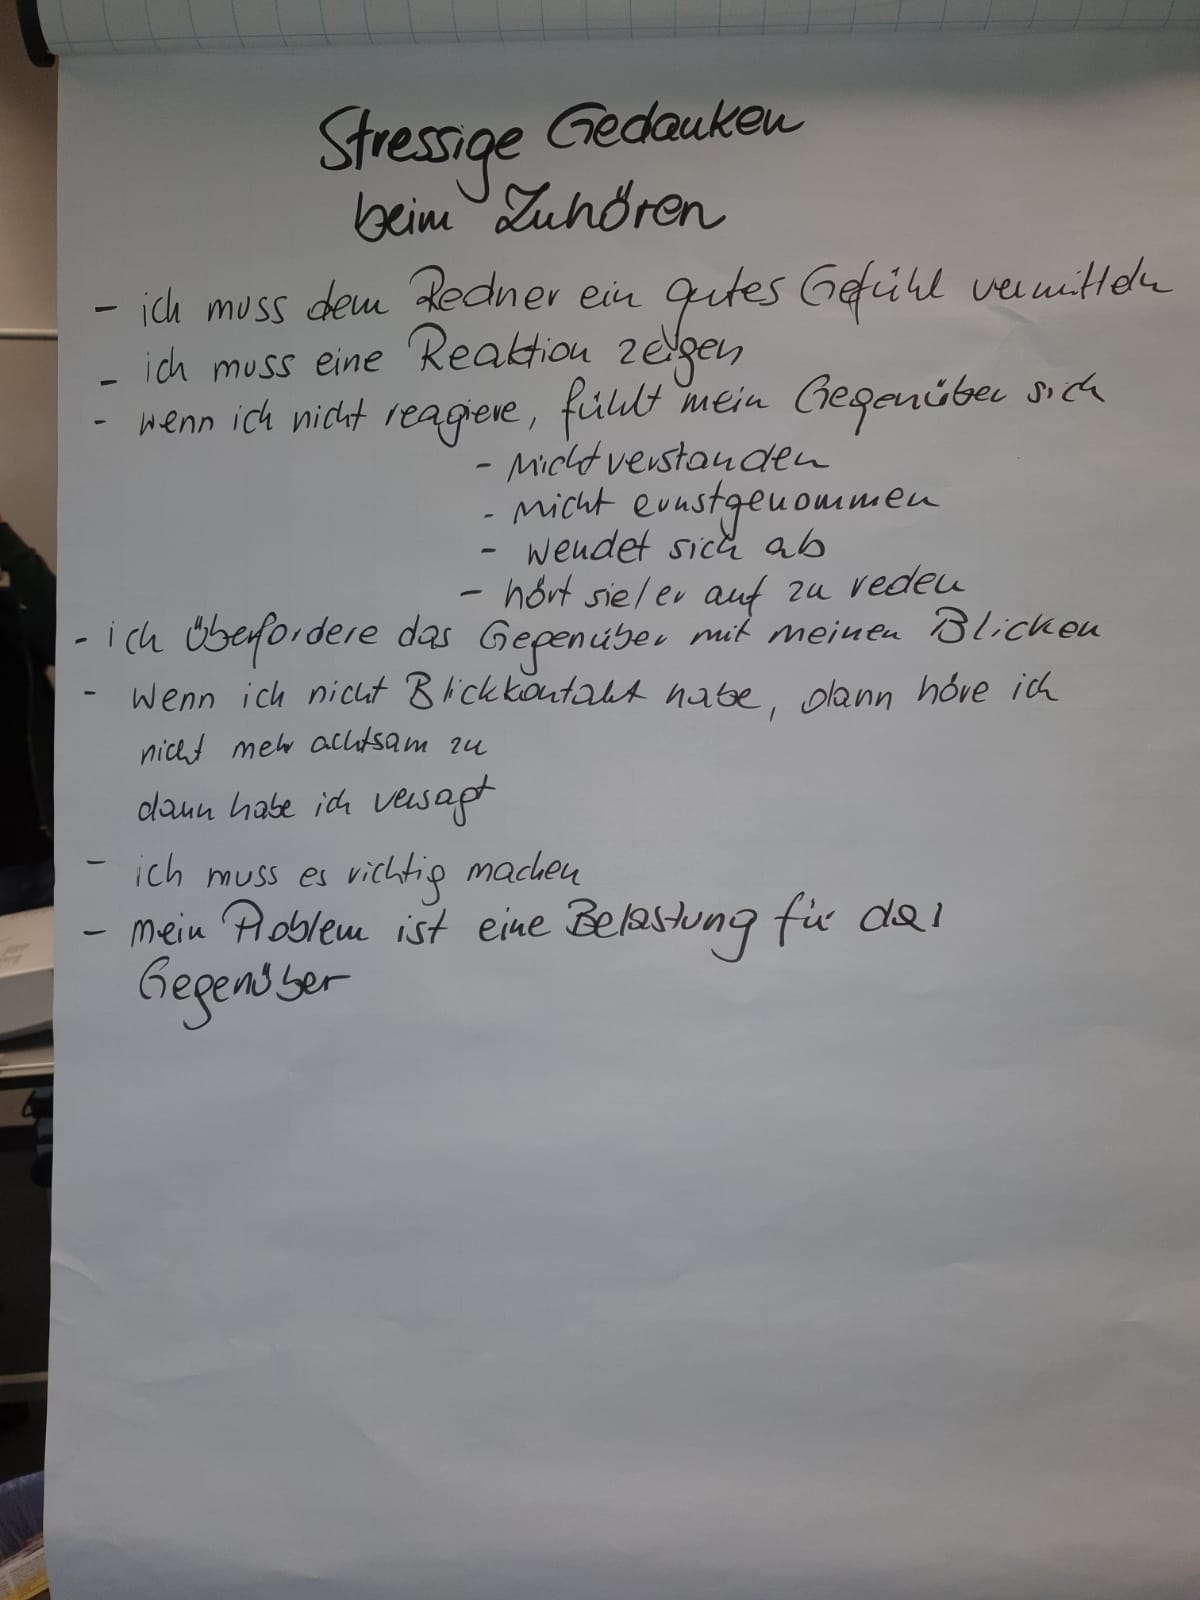 Stressige Gedanken
beim Zuhören
- ich muss dem Redner ein gutes Gefühl vermitteln
- ich muss eine Reaktion zeigen
- wenn ich nicht reagiere, fühlt mein Gegenüber sich
- nicht verstanden
- nicht ernstgenommen
- wendet sich ab
- hört sie/er auf zu reden
- ich überfordere das Gegenüber mit meinen Blicken
- wenn ich nicht Blickkontakt habe, dann höre ich
nicht mehr achtsam zu
dann habe ich versagt
- ich muss es richtig machen
- mein Problem ist eine Belastung für das
Gegenüber